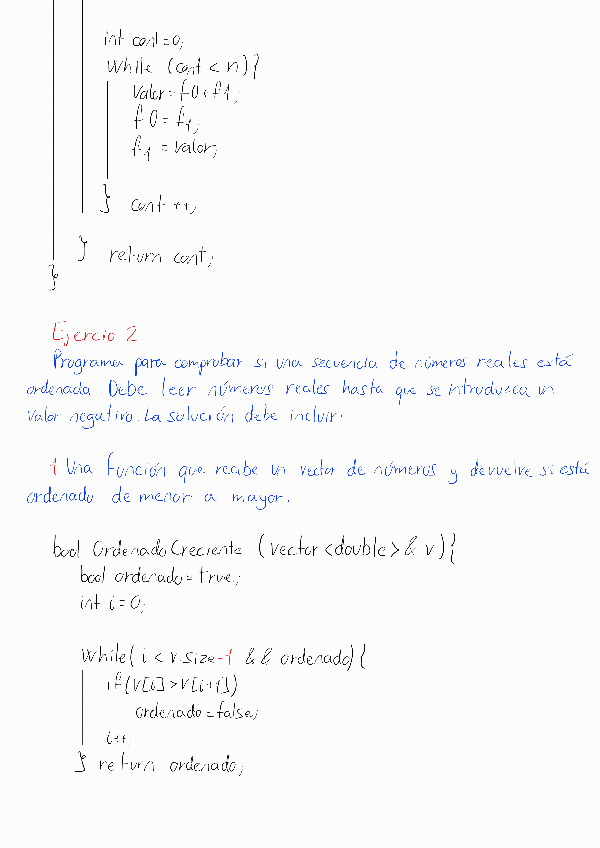 int cont=0;
while (cont < n){
valor=f0+f1;
f0=f1;
f1=valor;
} cont++;
} return cont;
}
Ejercio 2
Programa para comprobar si una secuencia de números reales está
ordenada. Debe leer números reales hasta que se introduzca un
valor negativo. La solución debe incluir:
1 Una función que recibe un vector de números y devuelve si está
ordenado de menor a mayor.
bool OrdenadoCreciente (vector<double>& v){
bool ordenado=true;
int i=0;
while(i < v.size-1 && ordenado){
if(v[i]>v[i+1])
ordenado=false;
i++;
} return ordenado;